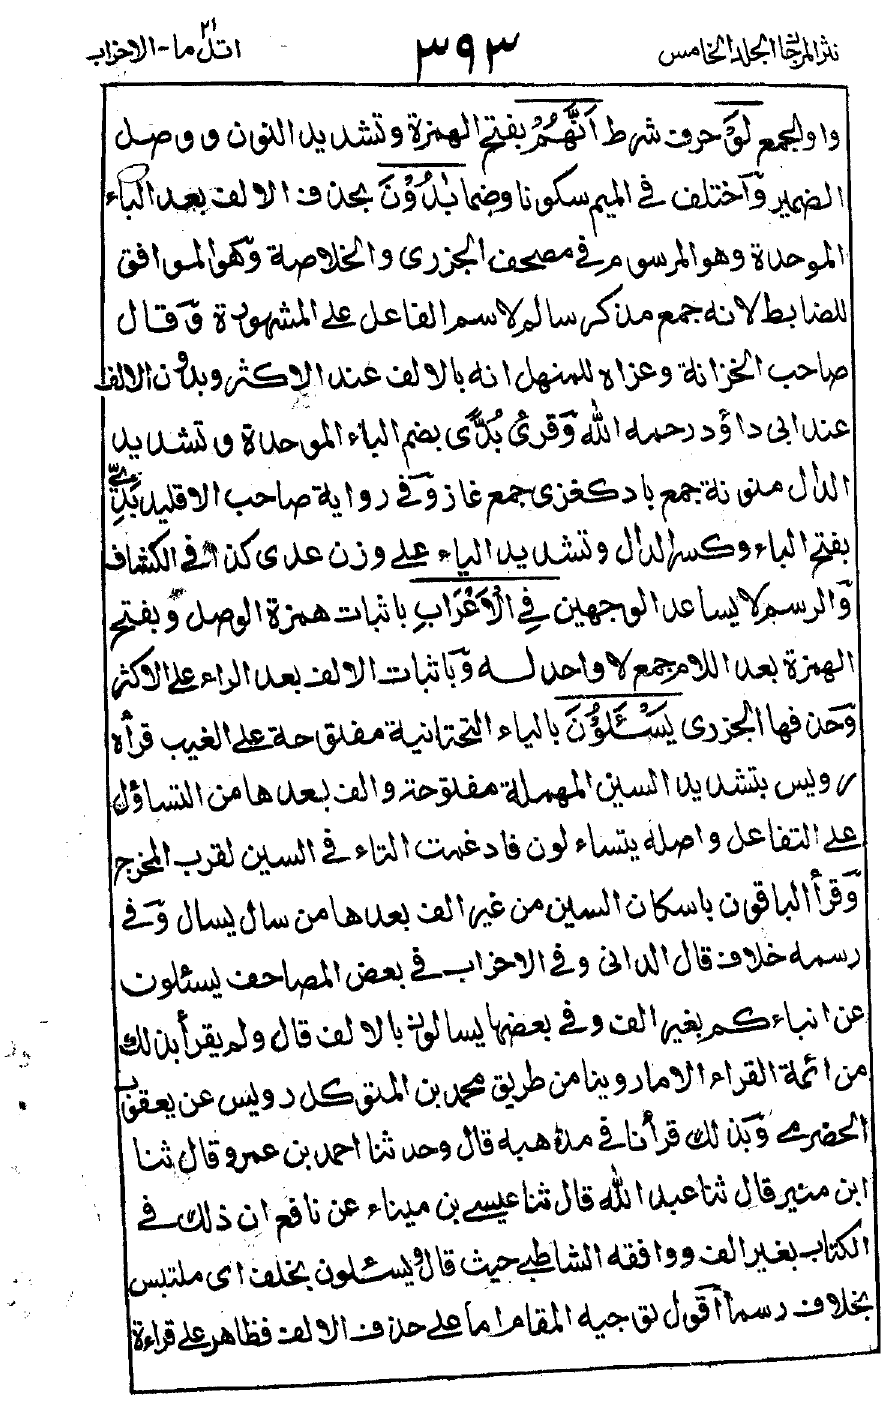 نثر المرجان الجلد الخامس
٣٩٣
اتل ما - الاحزاب
٢١
واو الجمع لَوْ حرف شرط اَنَّهُمْ بفتح الهمزة وتشديد النون ووصل
الضمير وَاختلف في الميم سكونا وضما بَادُوْنَ بحذف الالف بعد الباء
الموحدة وهو المرسوم في مصحف الجزرى والخلاصة وَهو الموافق
للضابط لانه جمع مذكر سالم لاسم الفاعل على المشهورة وَقال
صاحب الخزانة وعزاه للمنهل انه بالالف عند الاكثر وبدون الالف
عند ابى داؤد رحمه الله وَقرئ بُدًّى بضم الباء الموحدة وتشديد
الدال منونة جمع باد كغزى جمع غاز وَفي رواية صاحب الاقليد بَدِيّ
بفتح الباء وكسر الدال وتشديد الياء على وزن عدى كذا في الكشاف
وَالرسم لا يساعد الوجهين فِي الْاَعْرَابِ باثبات همزة الوصل وَبفتح
الهمزة بعد اللام جمع لا واحد له وَباثبات الالف بعد الراء على الاكثر
وَحذفها الجزرى يَسْئَلُوْنَ بالياء التحتانية مفتوحة على الغيب قرأه
رويس بتشديد السين المهملة مفتوحة والف بعدها من التساؤل
على التفاعل واصله يتساءلون فادغمت التاء في السين لقرب المخرج
وَقرأ الباقون باسكان السين من غير الف بعدها من سال يسال وَفي
رسمه خلاف قال الدانى وفي الاحزاب في بعض المصاحف يسئلون
عن انباءكم بغير الف وفي بعضها يسالون بالالف قال ولم يقرأ بذلك
من ائمة القراء الا ما روينا من طريق محمد بن المتوكل رويس عن يعقوب
الحضرمي وَبذلك قرأنا في مذهبه قال وحدثنا احمد بن عمرو قال ثنا
ابن منير قال ثنا عبد الله قال ثنا عيسى بن ميناء عن نافع ان ذلك في
الكتاب بغير الف ووافقه الشاطبي حيث قال ويسئلون بخلف اى ملتبس
بخلاف رسما اَقول توجيه المقام اما على حذف الالف فظاهر على قراءة